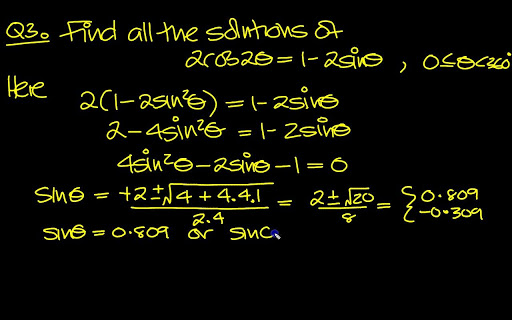 Q3. Find all the solutions of
2cos2θ = 1 - 2sinθ , 0 ≤ θ < 360°
Here
2(1 - 2sin²θ) = 1 - 2sinθ
2 - 4sin²θ = 1 - 2sinθ
4sin²θ - 2sinθ - 1 = 0
sinθ = +2 ± √(4 + 4.4.1) / 2.4 = 2 ± √20 / 8 = { 0.809
-0.309
sinθ = 0.809 or sin